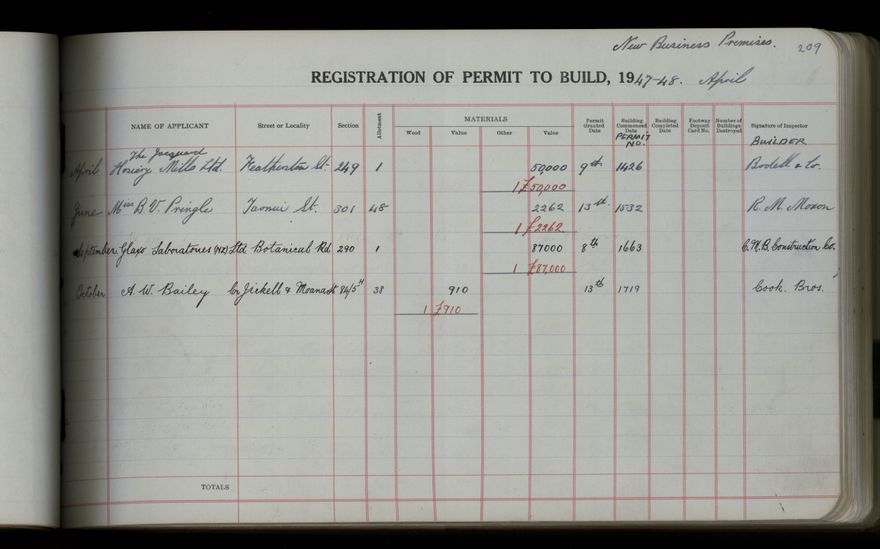 New Business Premises. 209
REGISTRATION OF PERMIT TO BUILD, 1947-48. April
NAME OF APPLICANT Street or Locality Section Allotment MATERIALS Wood Value Other Value Permit Granted Date Building Commenced Date PERMIT NO. Building Completed Date Footway Deposit Card No. Number of Buildings Destroyed Signature of Inspector BUILDER
The Jacquard
April Hosiery Mills Ltd. Featherston St. 249 1 50,000 9th 1426 Bodell & Co.
1 £50,000
June Miss B. V. Pringle Taonui St. 301 48 2262 13th 1532 R. M. Moxon
1 £2262
September Glaxo Laboratories (NZ) Ltd Botanical Rd 290 1 87000 8th 1663 C.M.B. Construction Co.
1 £87,000
October A. W. Bailey Cr Jickell & Moana St 38 910 13th 1719 Cook Bros.
1 £910
TOTALS